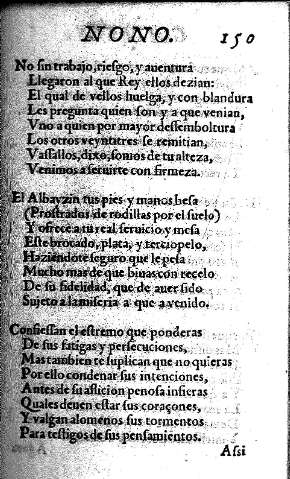 NONO. 150
No sin trabajo, riesgo, y auentura
Llegaron al que Rey ellos dezian:
El qual de vellos huelga, y con blandura
Les pregunta quien son y a que venian,
Vno a quien por mayor desemboltura
Los otros veyntitres se remitian,
Vassallos, dixo, somos de tu alteza,
Venimos a seruirte con firmeza.
El Albayzin tus pies y manos besa
(Prostrados de rodillas por el suelo)
Y ofrece a tu real seruicio, y mesa
Este brocado, plata, y terciopelo,
Haziendote seguro que le pesa
Mucho mas de que biuas con recelo
De su fidelidad, que de auer sido
Sujeto a la miseria a que a venido.
Confiessan el estremo que ponderas
De sus fatigas y persecuciones,
Mas tambien te suplican que no quieras
Por ello condenar sus intenciones,
Antes de su aflicion penosa infieras
Quales deuen estar sus coraçones,
Y valgan alomenos sus tormentos
Para testigos de sus pensamientos.
Assi